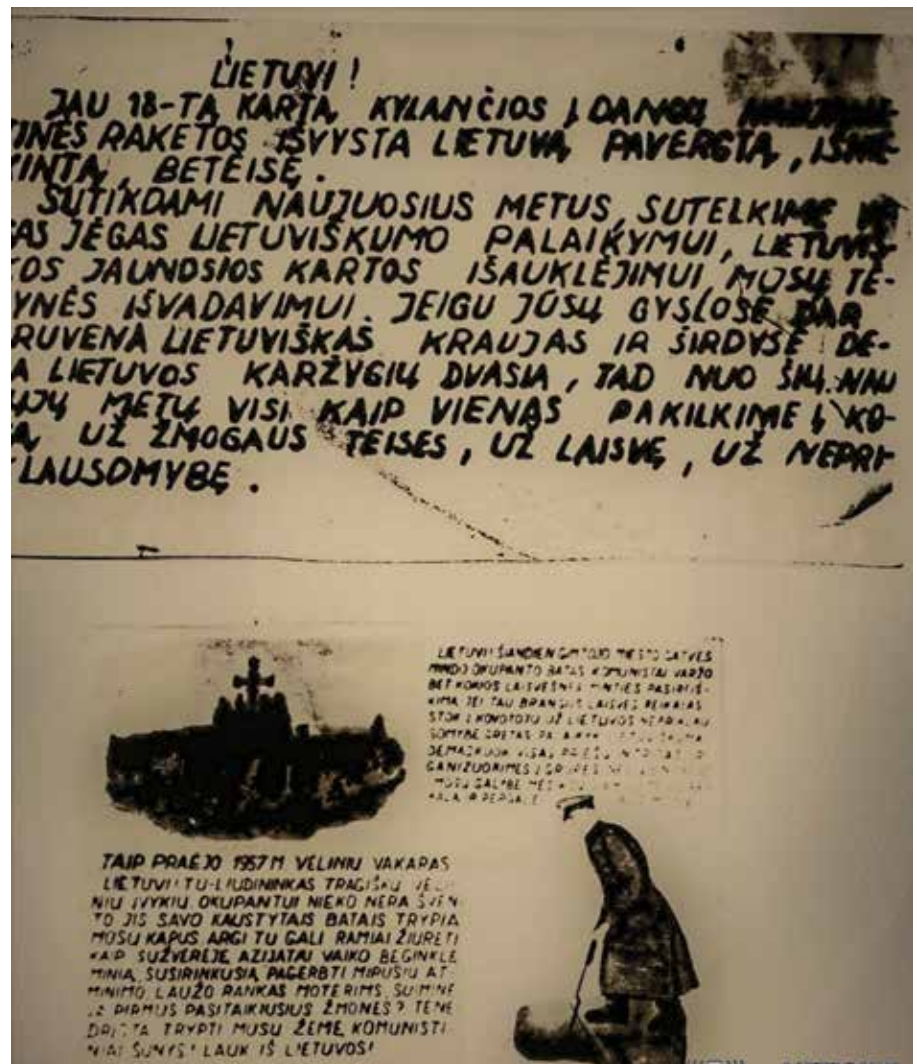 LIETUVI!
JAU 18-TĄ KARTĄ, KYLANČIOS Į DANGŲ
TINĖS RAKETOS IŠVYSTA LIETUVĄ PAVERGTĄ, IŠNIE-
KINTĄ, BETEISĘ.
SUTIKDAMI NAUJUOSIUS METUS, SUTELKIME
SAS JĖGAS LIETUVIŠKUMO PALAIKYMUI, LIETUVIŠ-
KOS JAUNOSIOS KARTOS IŠAUKLĖJIMUI, MŪSŲ TĖ-
VYNĖS IŠVADAVIMUI. JEIGU JŪSŲ GYSLOSE DAR
RUVENA LIETUVIŠKAS KRAUJAS IR ŠIRDYSE DE-
A LIETUVOS KARŽYGIŲ DVASIA, TAD NUO ŠIŲ NAU
JŲJŲ METŲ VISI KAIP VIENAS PAKILKIME Į KO-
Ą, UŽ ŽMOGAUS TEISES, UŽ LAISVĘ, UŽ NEPRI-
LAUSOMYBĘ.
LIETUVI! ŠIANDIEN GIMTOJO MIESTO GATVES
MINDO OKUPANTO BATAS KOMUNISTAI VARŽO
BET KOKIOS LAISVESNĖS MINTIES PASIREIŠ-
KIMĄ JEI TAU BRANGUS LAISVĖS REIKALAS
STOK Į KOVOTOJŲ UŽ LIETUVOS NEPRIKLAU
SOMYBĘ GRETAS
DEMASKUOK VISAS
GANIZUOKIMĖS Į GRUPES
MŪSŲ GALYBĖ
TAIP PRAĖJO 1957 M VĖLINIŲ VAKARAS
LIETUVI! TU-LIUDININKAS TRAGIŠKŲ VĖLI-
NIŲ ĮVYKIŲ OKUPANTUI NIEKO NĖRA ŠVEN-
TO JIS SAVO KAUSTYTAIS BATAIS TRYPIA
MŪSŲ KAPUS ARGI TU GALI RAMIAI ŽIŪRĖTI
KAIP SUŽVĖRĖJĘ AZIJATAI VAIKO BEGINKLĘ
MINIĄ, SUSIRINKUSIĄ PAGERBTI MIRUSIŲ AT-
MINIMO, LAUŽO RANKAS MOTERIMS, SUIMINĖ
JA PIRMUS PASITAIKIUSIUS ŽMONES? TENE
DRĮSTA TRYPTI MŪSŲ ŽEMĘ KOMUNISTI-
NIAI ŠUNYS! LAUK IŠ LIETUVOS!